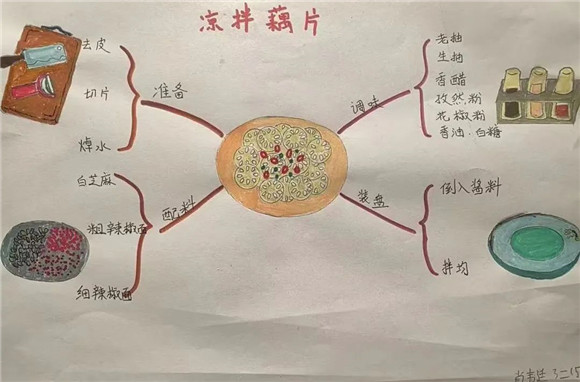 凉拌藕片
准备
去皮
切片
焯水
配料
白芝麻
粗辣椒面
细辣椒面
调味
老抽
生抽
香醋
孜然粉
花椒粉
香油.白糖
装盘
倒入酱料
拌均